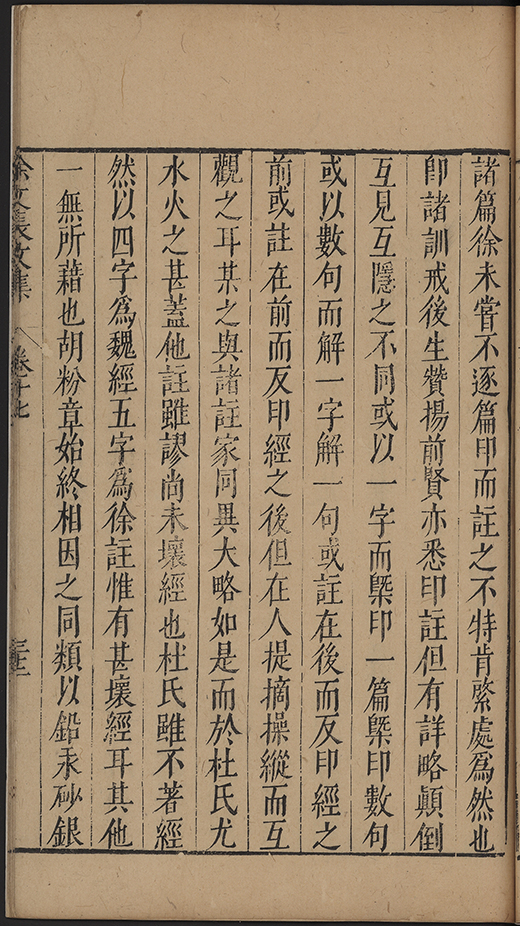 諸篇徐未嘗不逐篇印而註之不特肯綮處爲然也
卽諸訓戒後生贊揚前賢亦悉印註但有詳略顛倒
互見互隱之不同或以一字而槩印一篇槩印數句
或以數句而解一字解一句或註在後而反印經之
前或註在前而反印經之後但在人提摘操縱而互
觀之耳某之與諸註家同異大略如是而於杜氏尤
水火之甚蓋他註雖謬尚未壞經也杜氏雖不著經
然以四字爲魏經五字爲徐註惟有甚壞經耳其他
一無所藉也胡粉章始終相因之同類以鉛汞砂銀
徐文長文集
卷十七